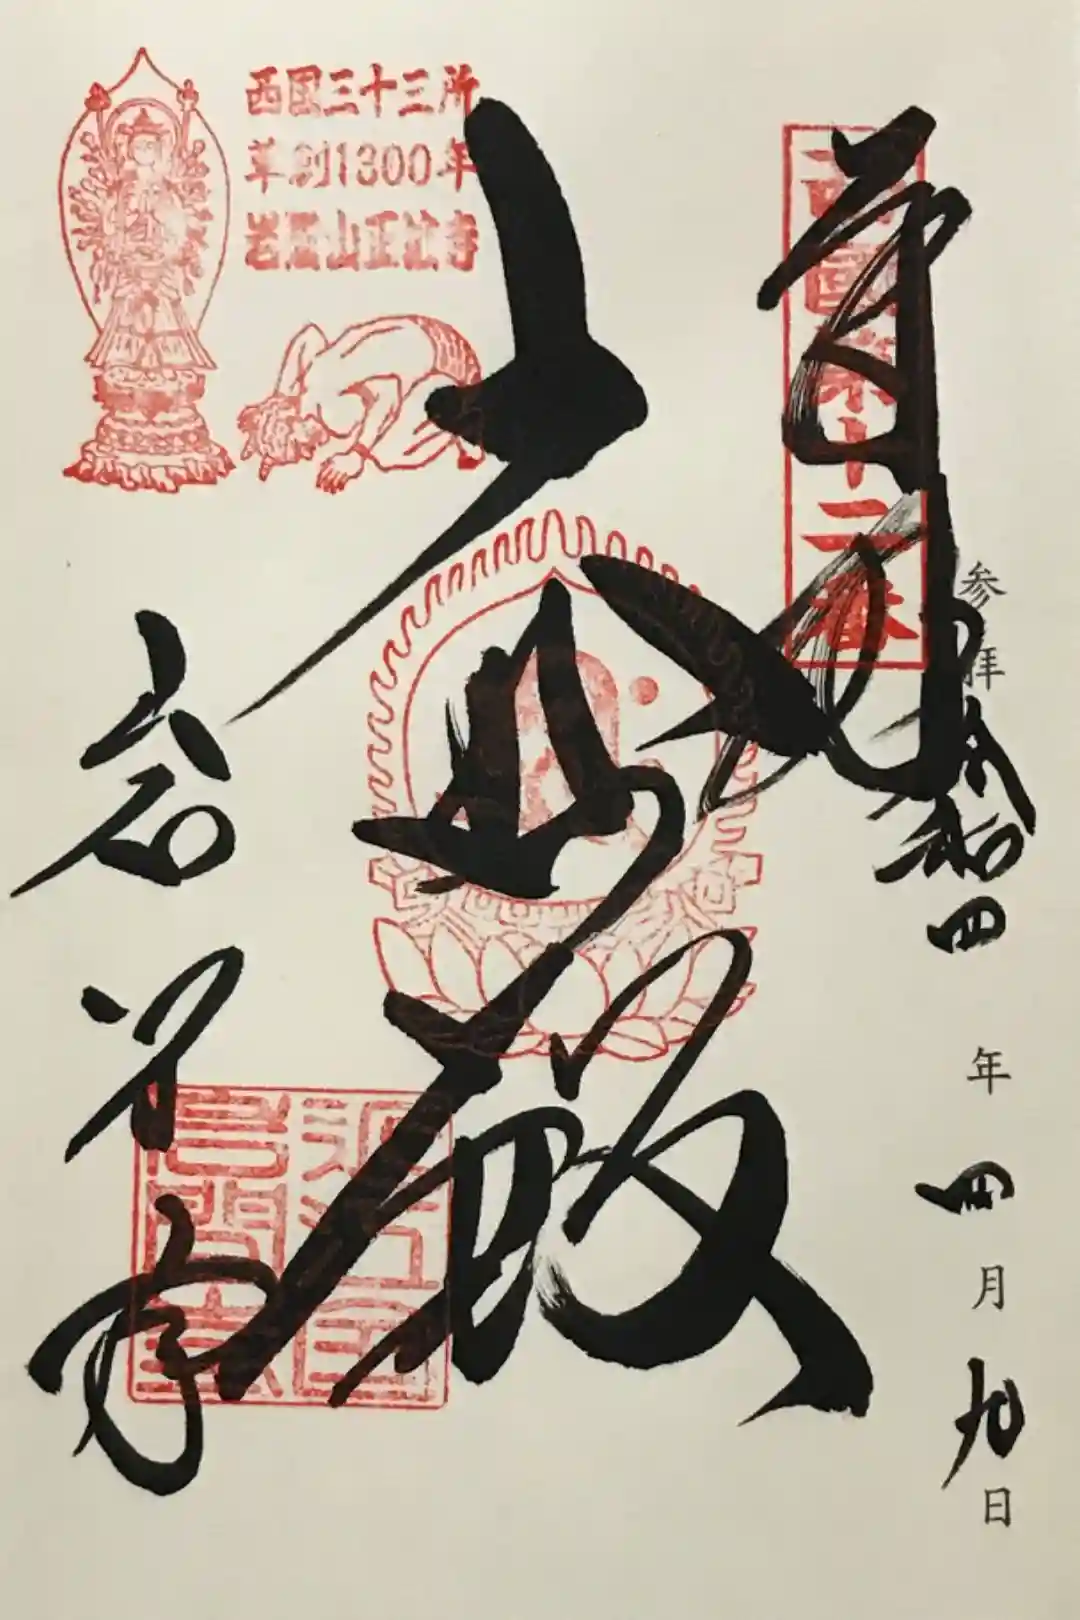 西国三十三所
草創1300年
岩間山正法寺
西國第十二番
奉拜
参拝 令和四年四月九日
大悲殿
岩間寺